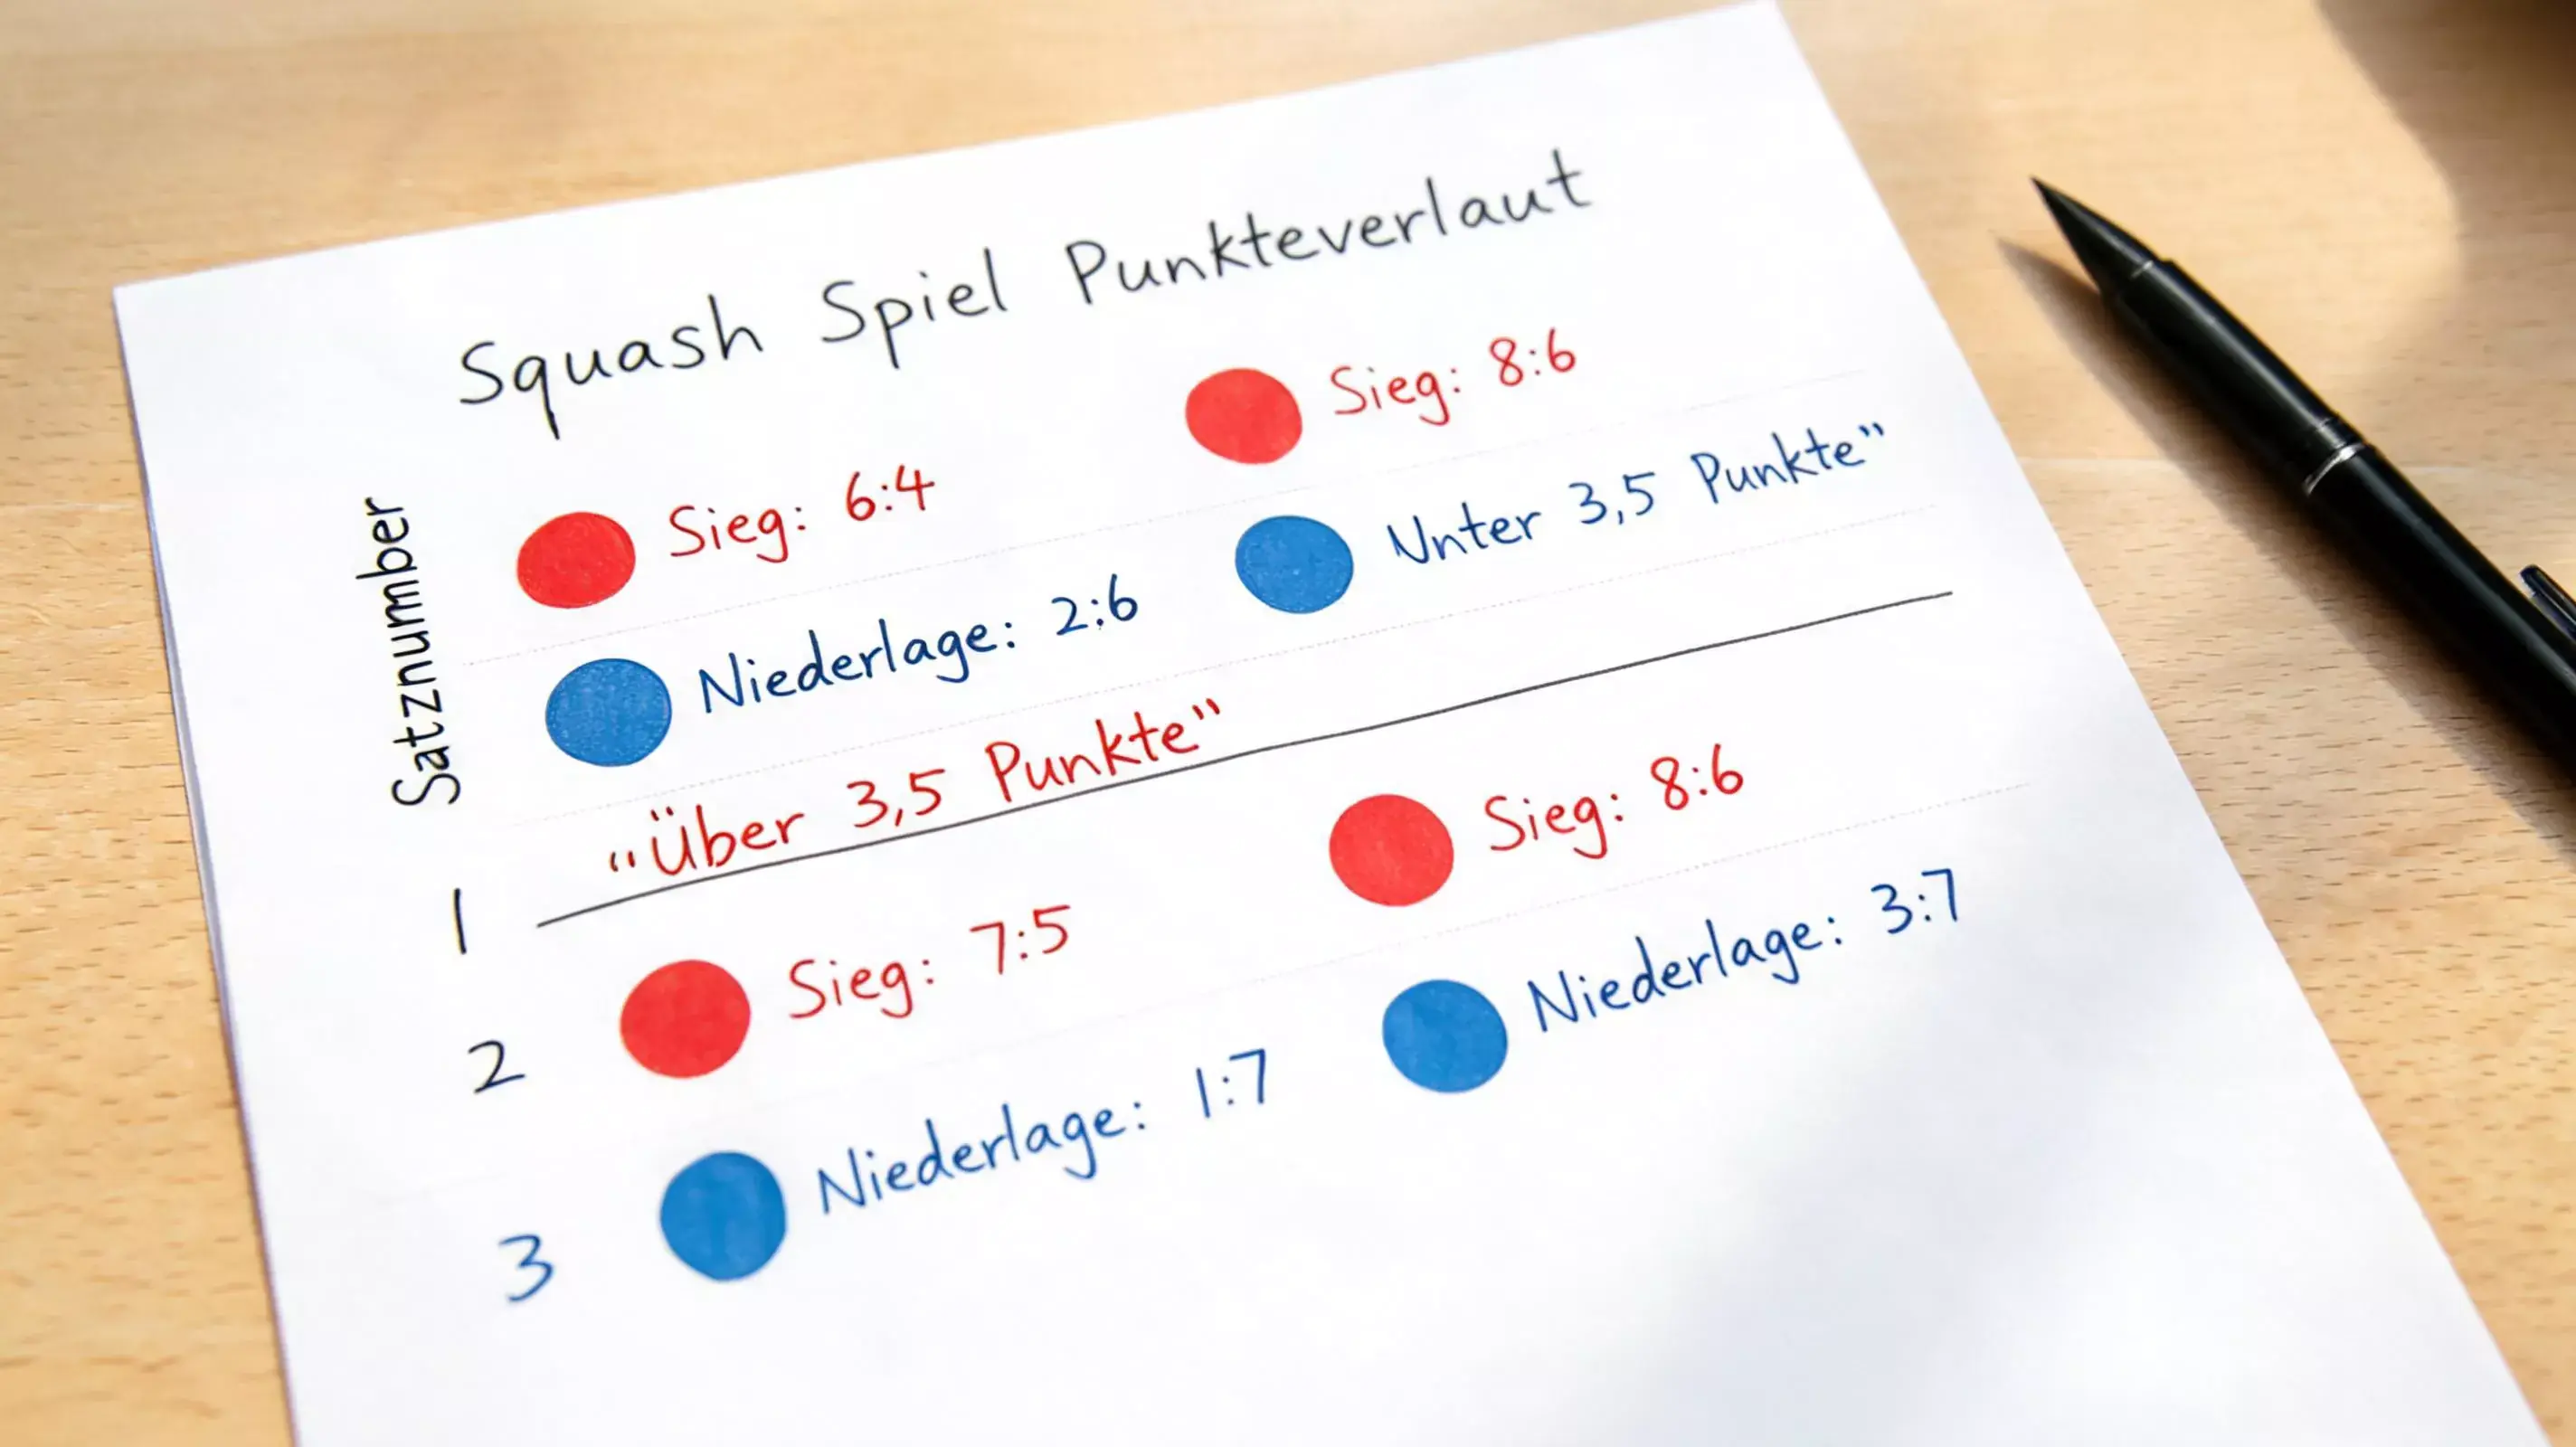 Squash Spiel Punkteverlaut
Satznumber
Sieg: 6:4
Sieg: 8:6
Niederlage: 2:6
Unter 3,5 Punkte”
“Über 3,5 Punkte”
1
Sieg: 7:5
Sieg: 8:6
2
Niederlage: 1:7
Niederlage: 3:7
3